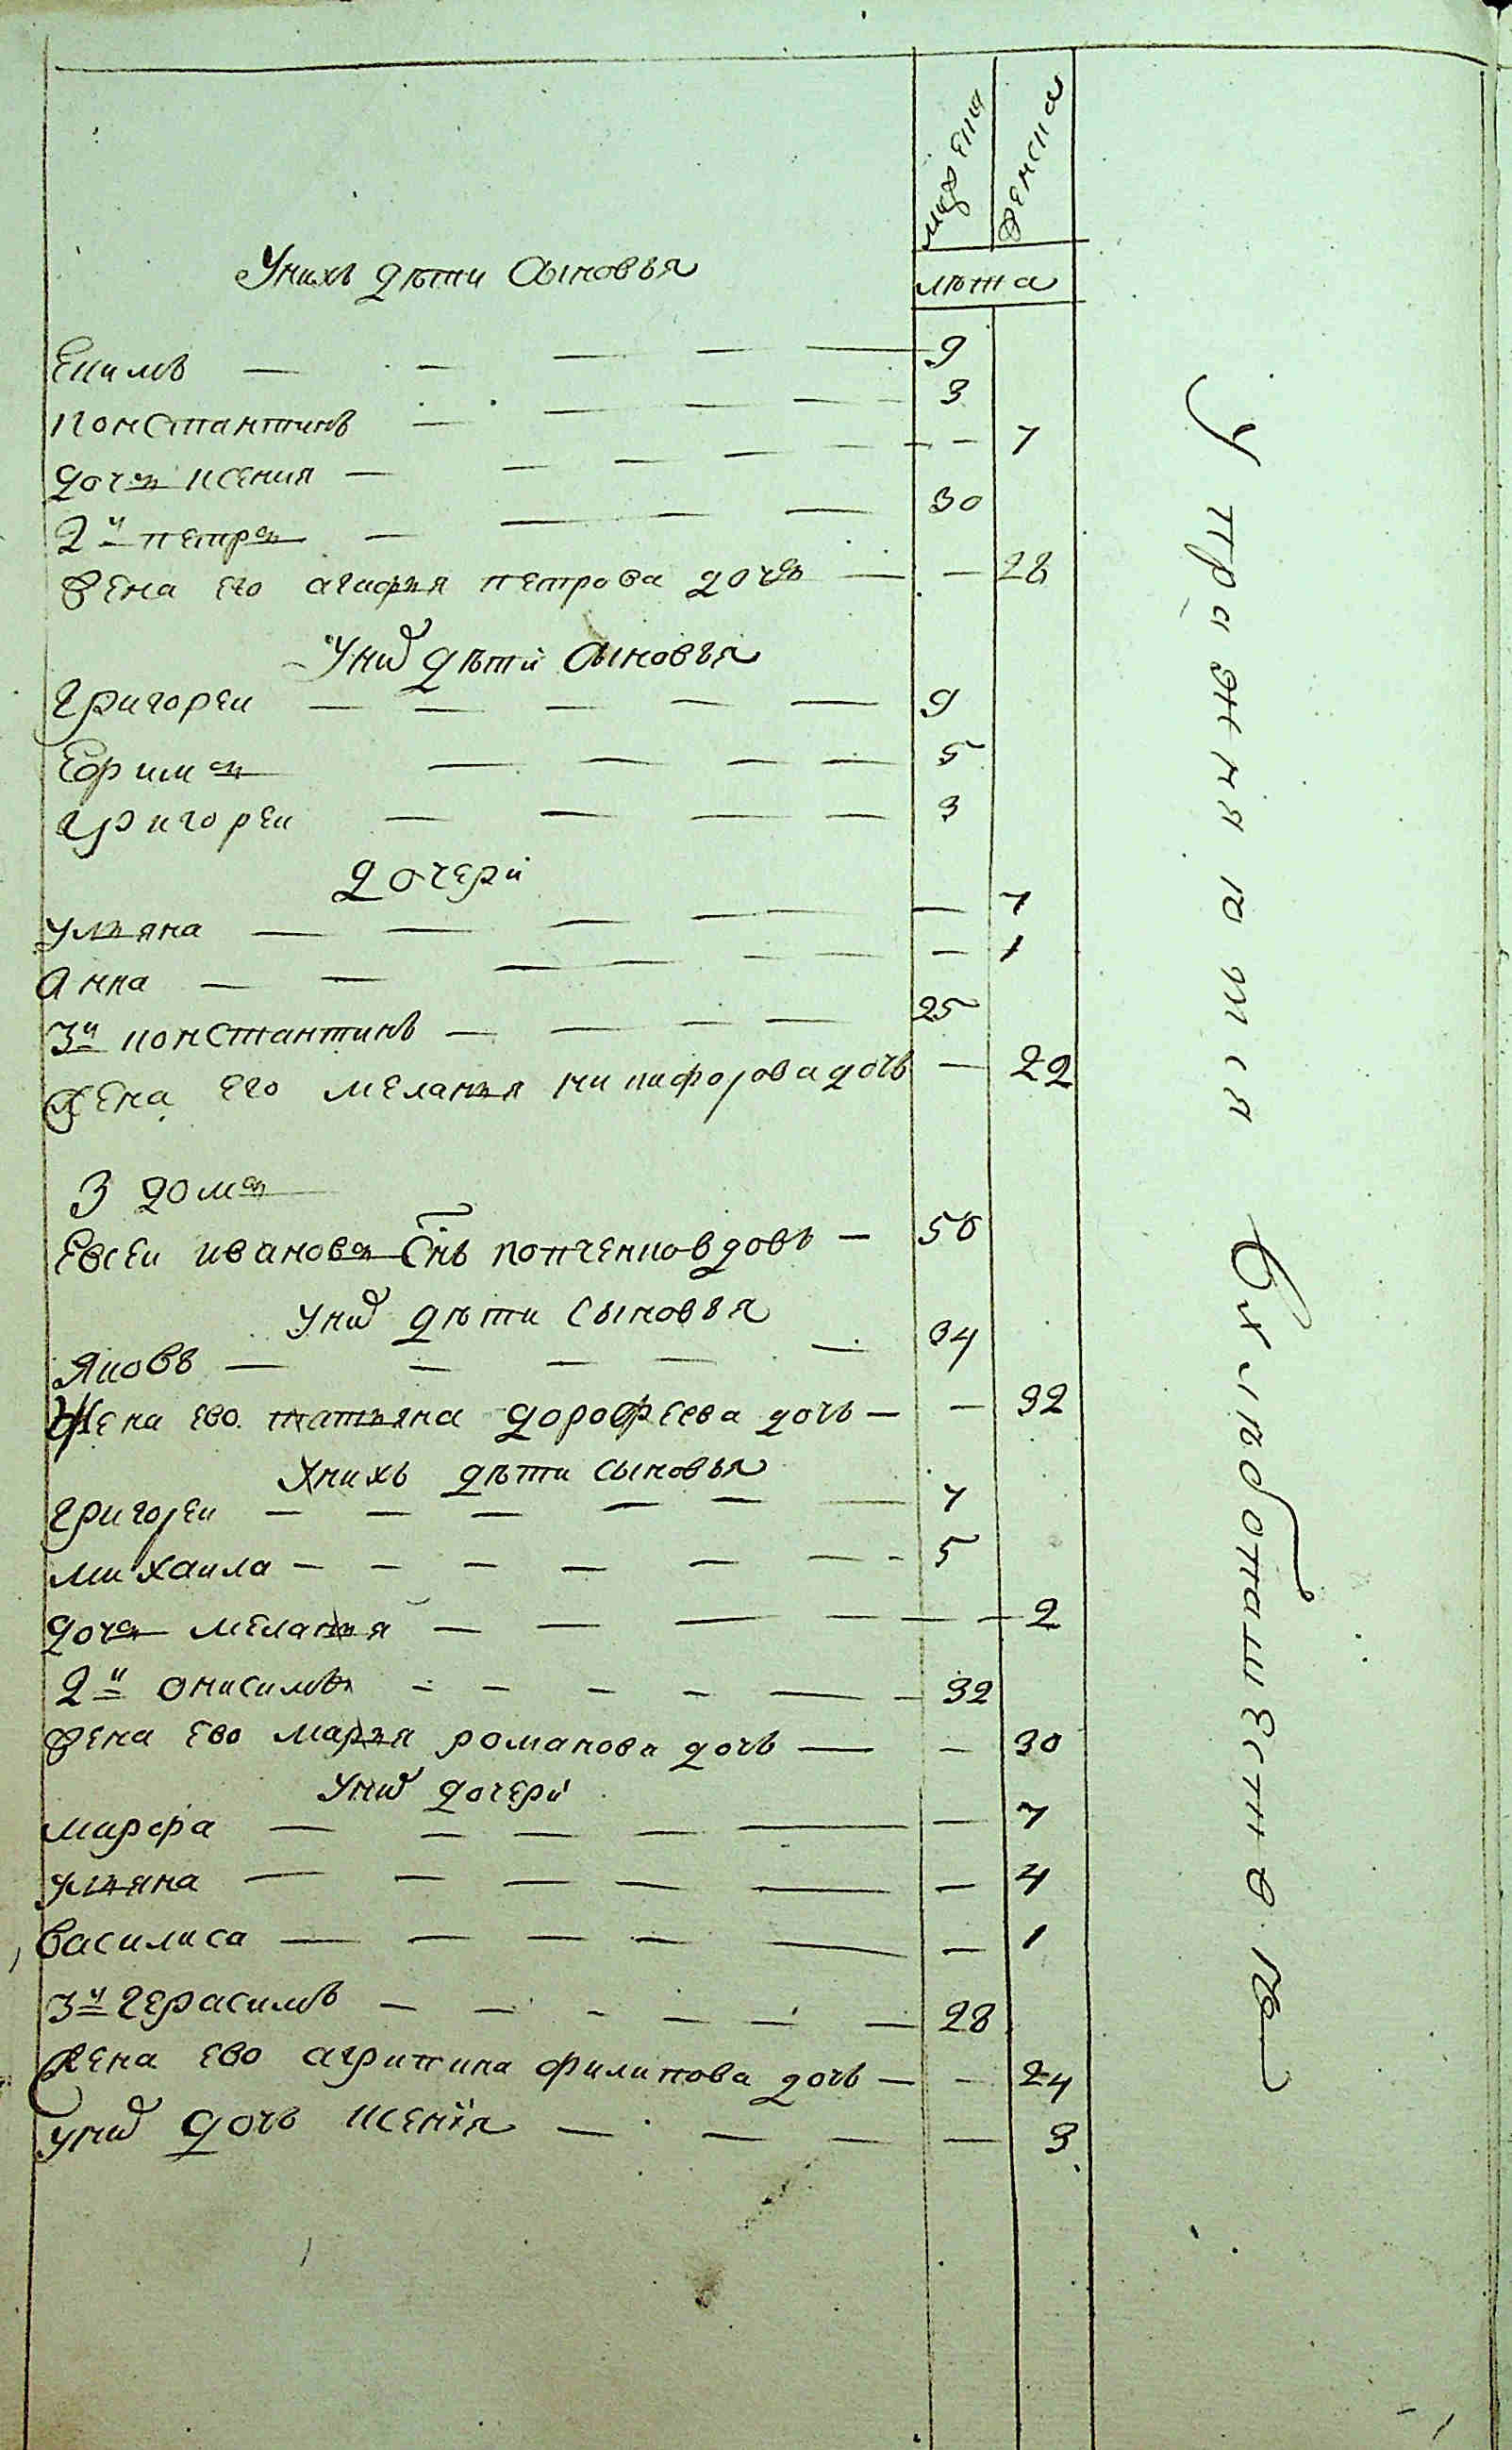 мужеска
женска
лѣта
Унихъ дѣти сыновья
Екимъ — — — — — 9
константинъ — — — — — 3
дочь ксения — — — — — — 7
2й петръ — — — — 30
жена его агафья петрова дочь — — 28
Унихъ дѣти сыновья
григореи — — — — — 9
Ефимъ — — — — 5
григореи — — — — 3
дочери
ульяна — — — — — 7
анна — — — — — — — 1
3й константинъ — — — — 25
жена его меланья никифорова дочь — 22
3 домъ
Евсеи ивановъ Снъ копченковъ довъ — 50
Унихъ дѣти сыновья
Яковъ — — — — — 34
Жена ево татьяна дорофеева дочь — — 32
Унихъ дѣти сыновья
григореи — — — — — — 7
михаила — — — — — — 5
дочь меланья — — — — — — 2
2й онисимъ — — — — — — 32
жена ево марья романова дочь — — 30
Унихъ дочери
марфа — — — — — — 7
ульяна — — — — — — 4
василиса — — — — — — 1
3й герасимъ — — — — — — 28
жена ево агрипина филипова дочь — — 24
унихъ дочь ксения — — — — 3